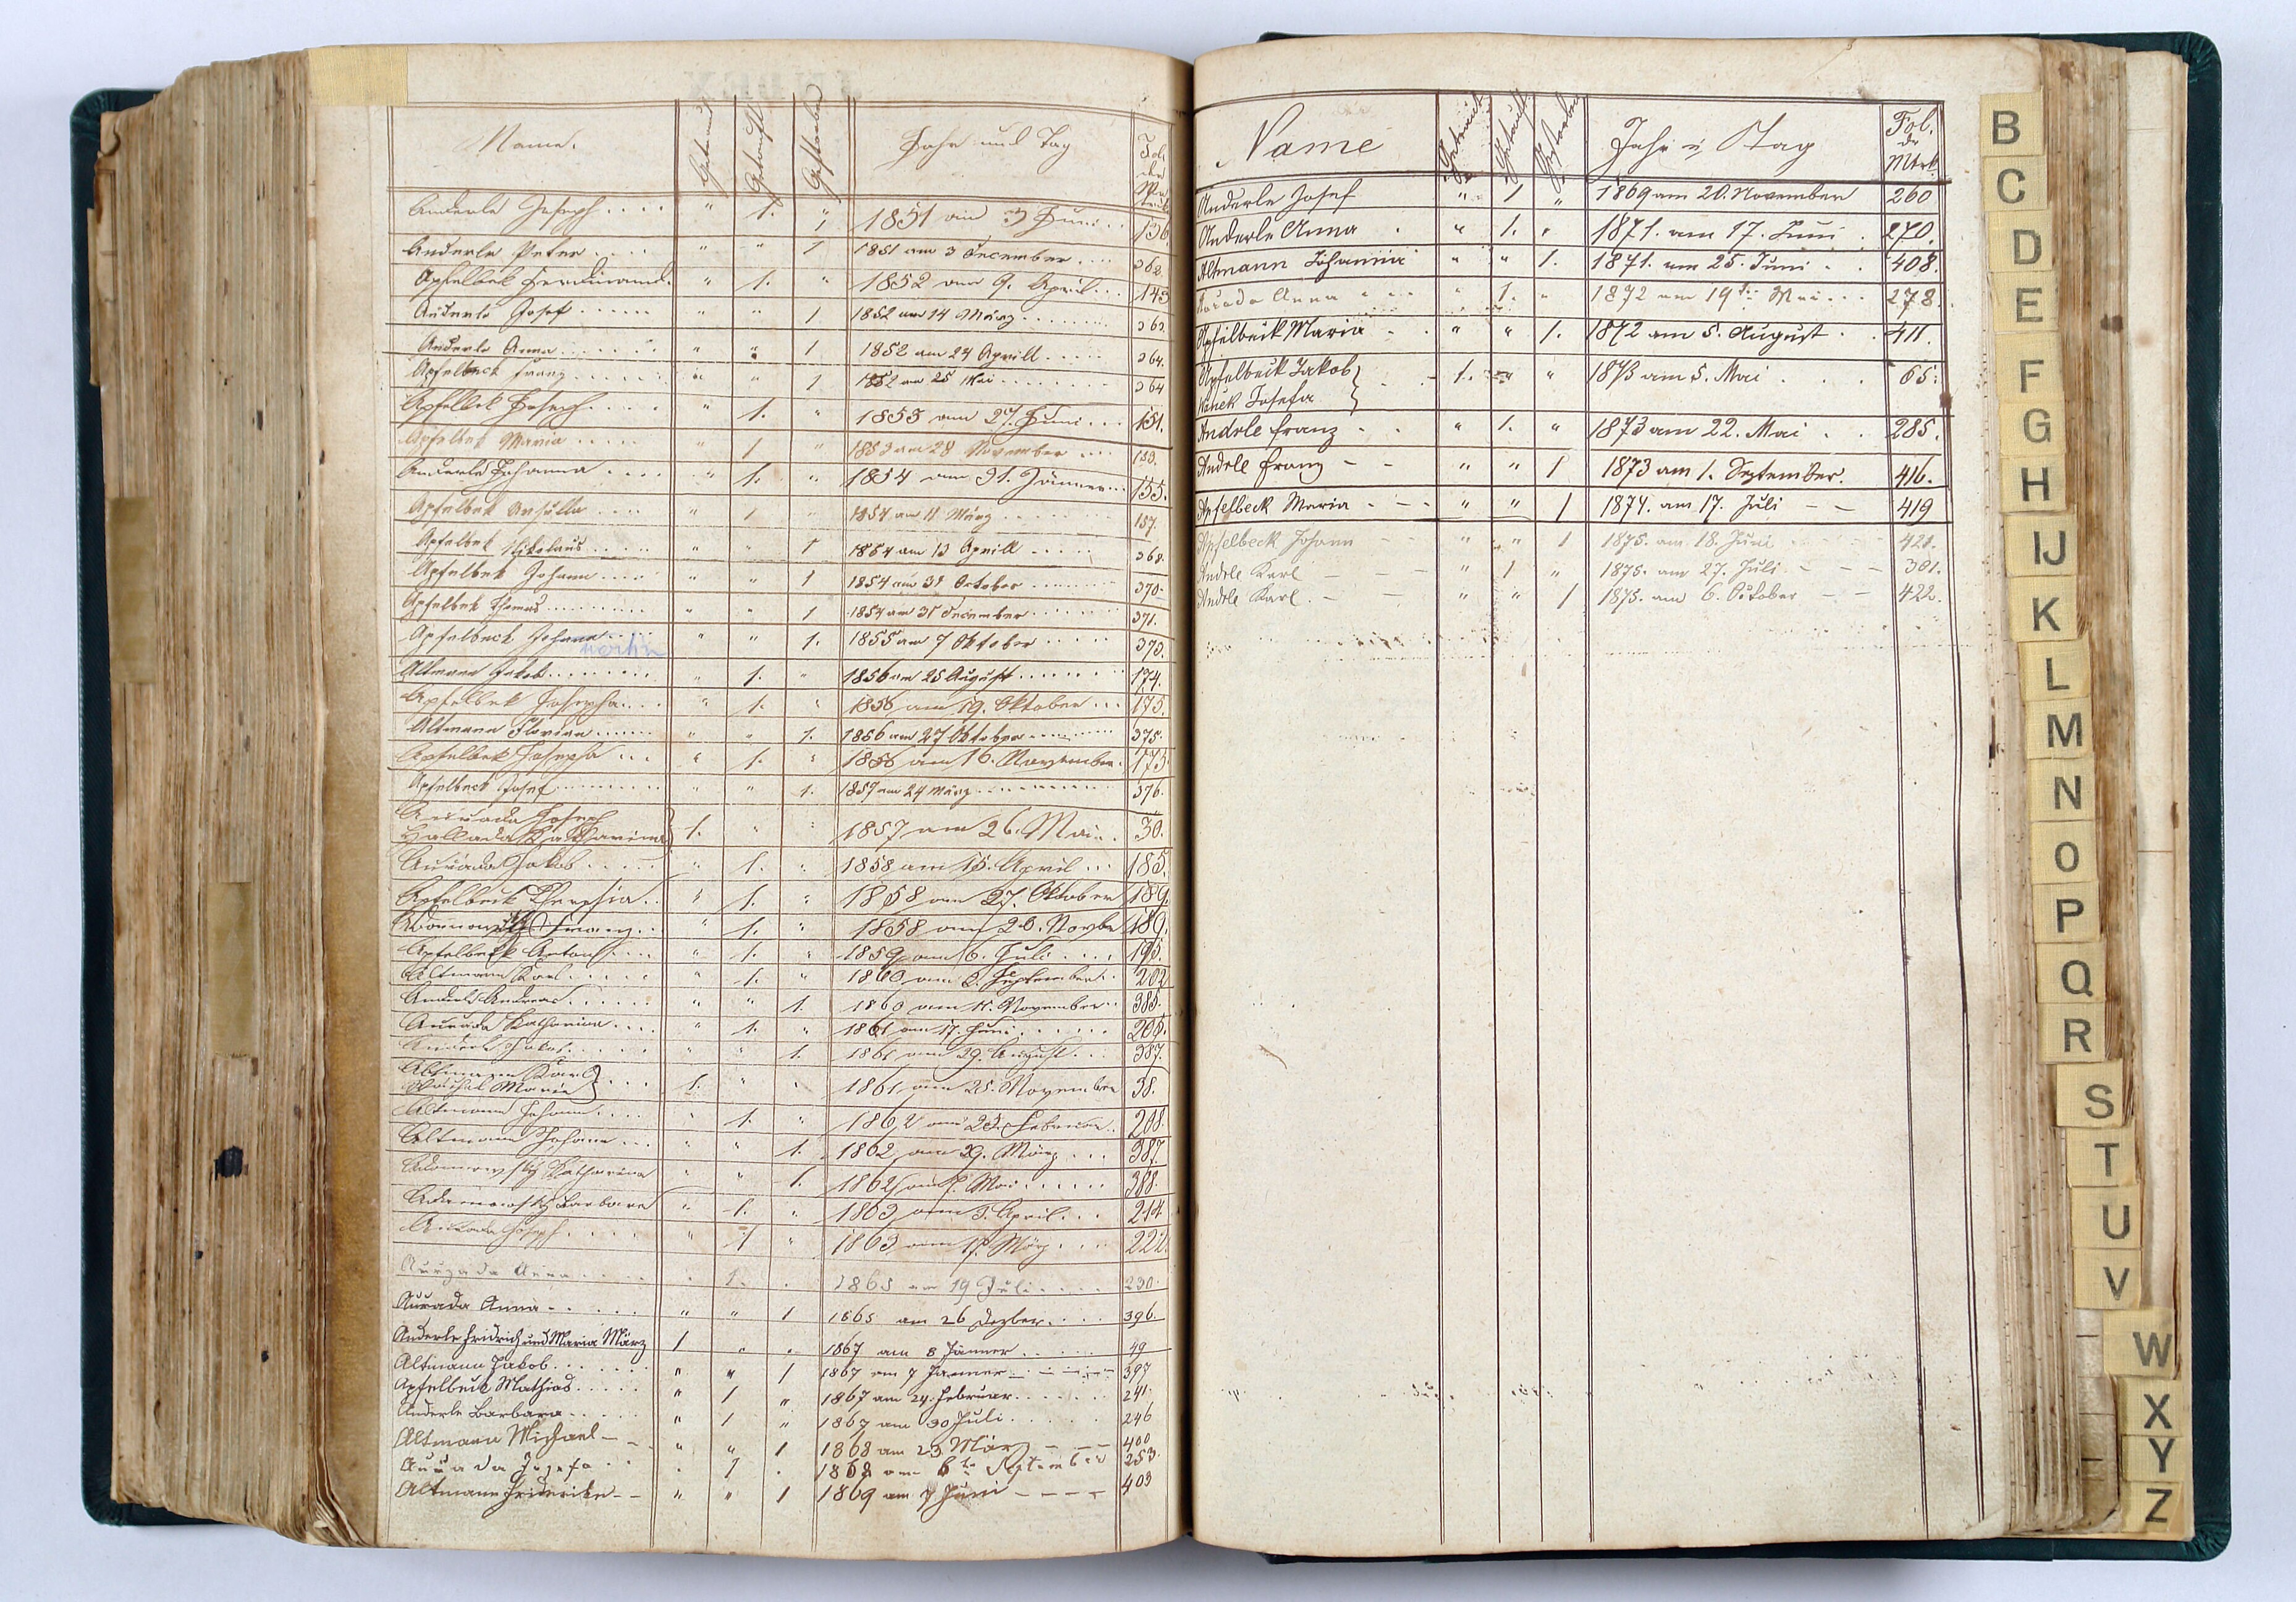 Name.
Getraut
Getauft
Gestorben
Jahr und Tag
Fol. der Matrik
Anderle Joseph .... " 1. " 1851 am 3 Juni .. 136.
Anderle Peter .... " " 1 1851 am 3 December ... 362.
Apfelbek Ferdinand. " 1. " 1852 am 9. April ... 143
Anderle Josef ...... " " 1 1852 am 14 März ........ 363.
Anderle Anna ...... " " 1 1852 am 24 Aprill ..... 364.
Apfelbeck Franz ...... " " 1 1852 am 25 Mai ........ 364
Apfelbek Joseph .... " 1. " 1853 am 27. Juni ... 151.
Apfelbek Maria ..... " 1 " 1853 am 28 November ... 153.
Anderle Johanna .... " 1. " 1854 am 31. Jänner ... 155.
Apfelbek .... " 1 " 1854 am 11 März ..... 157.
Apfelbek Nikolaus ..... " " 1 1854 am 13 Aprill ..... 368.
Apfelbek Johann .... " " 1 1854 am 31 October ........ 370.
Apfelbek Thomas ......... " " 1 1854 am 31 December ...... 371.
Apfelbeck Johann ..... " " 1. 1855 am 7 Oktober ..... 373.
Altmann Jakob ........ " 1. " 1856 am 25 August ....... 174.
Apfelbek Josepha .... " 1. " 1856 am 19. Oktober ... 175.
Altmann Florian ...... " " 1. 1856 am 27 Oktober ........ 375.
Apfelbek Josepha ... " 1. " 1856 am 16. November. 175.
Apfelbeck Josef ......... " " 1. 1857 am 24 März ......... 376.
Aurada Joseph
Hallada Katharina } 1. " " 1857 am 26. Mai. 30.
Aurada Jakob ..... " 1. " 1858 am 15. April ... 185.
Apfelbeck Theresia .. " 1. " 1858 am 27. Oktober 189.
Franz ... " 1. " 1858 am 20. Novbr 189.
Apfelbek Anton .... " 1. " 1859 am 6. Juli .... 195.
Altmann Karl ..... " 1. " 1860 am 8. September .. 202
Anderle Andreas ...... " " 1. 1860 am 11. November .. 385.
Aurada Katharina .... " 1. " 1861 am 17. Juni ...... 205.
Anderle Jakob ..... " " 1. 1861 am 29. August ... 387.
Altmann Karl
Marie } ... 1. " " 1861 am 25. November 38.
Altmann Johann .... " 1. " 1862 am 23. Februar. 208.
Altmann Johann ... " " 1. 1862 am 29. März ... 387.
Adamowsky Katharina " " 1. 1862 am 7. Mai ...... 388.
Adamowsky Barbara " 1. " 1863 am 3. April ... 214
Aurada Joseph .... " 1 " 1863 am 17. März ... 222.
Aurzada Anna ..... " 1. " 1865 am 19 Juli ..... 230.
Aurada Anna - ..... " " 1 1865 am 26 Dezber. .... 396.
Anderle Fridrich und Maria März 1 " " 1867 am 8 Jänner ..... 49
Altmann Jakob ....... " " 1 1867 am 7 Jänner - - - - 397
Apfelbeck Mathias ..... " 1 " 1867 am 24. Februar ..... 241.
Anderle Barbara - ..... " 1 " 1867 am 30 Juli ..... 246
Altmann Michael - - " " 1 1868 am 23 März - - - 400
Aurada Josefa .. " 1 " 1868 am 6te September 253.
Altmann Friderike - - " " 1 1869 am 7 Juni - - - - 403
Name
Getraut
Getauft
Gestorben
Jahr u Tag
Fol. der Mtrk.
Anderle Josef " 1 " 1869 am 20. November 260
Anderle Anna . " 1. " 1871. am 17. Juni . 270.
Altmann Johanna " " 1. 1871. am 25. Juni . . 408.
Aurada Anna ... " 1. " 1872 am 19te Mai ... 278.
Apfelbeck Maria . . " " 1. 1872 am 5. August . . 411.
Apfelbeck Jakob
Josefa } . . 1. " " 1873 am 5. Mai . . . 65.
Andrle Franz . . " 1. " 1873 am 22. Mai . . 285.
Andrle Franz - - " " 1 1873 am 1. September. 416.
Apfelbeck Maria - - - " " 1 1874. am 17. Juli - - 419
Apfelbeck Johann - - " " 1 1875. am 18. Juni - - - 421.
Andrle Karl - - - " 1 " 1875. am 27. Juli - - - 301.
Andrle Karl. - - - " " 1 1875. am 6. October - - 422.
B
C
D
E
F
G
H
IJ
K
L
M
N
O
P
Q
R
S
T
U
V
W
X
Y
Z